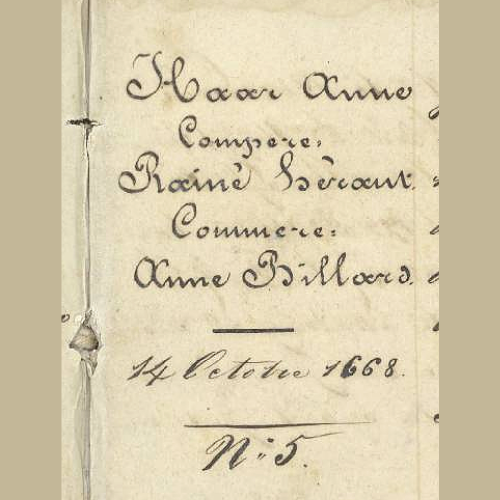 Haar Anne
Compere:
Rainè Hèraut.
Commere:
Anne Billard.
14 Octobre 1668.
N: 5.